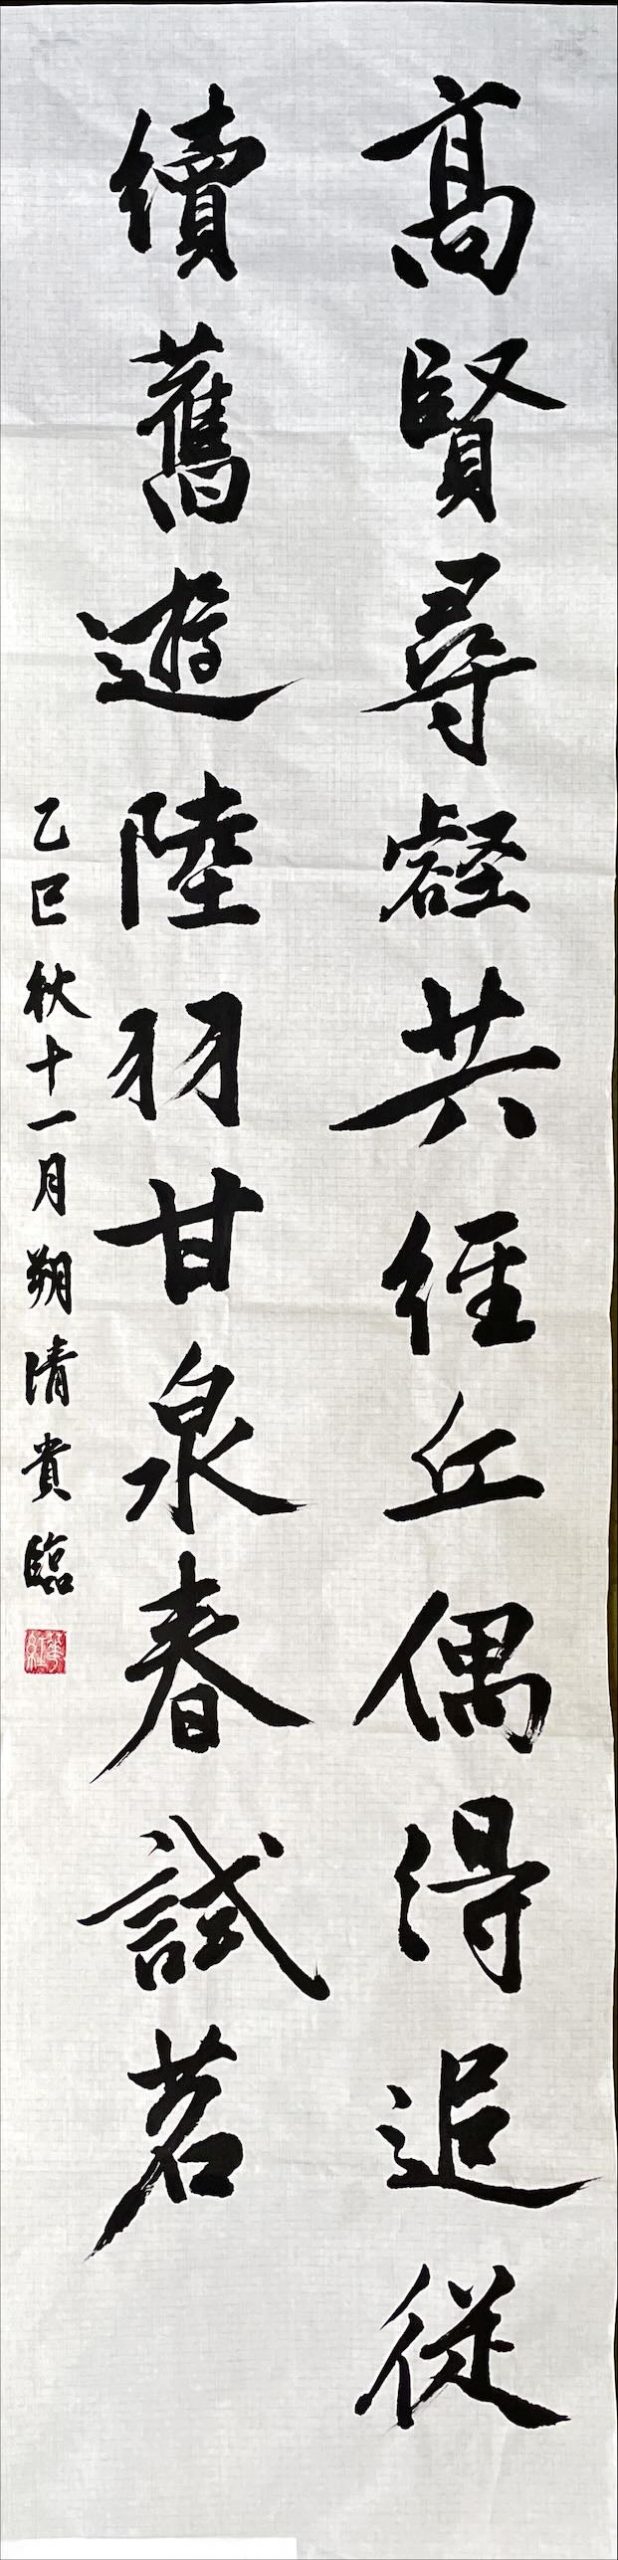 高賢尋壑共經丘偶得追從
續舊遊陸羽甘泉春試茗
乙巳秋十一月朔清貴臨